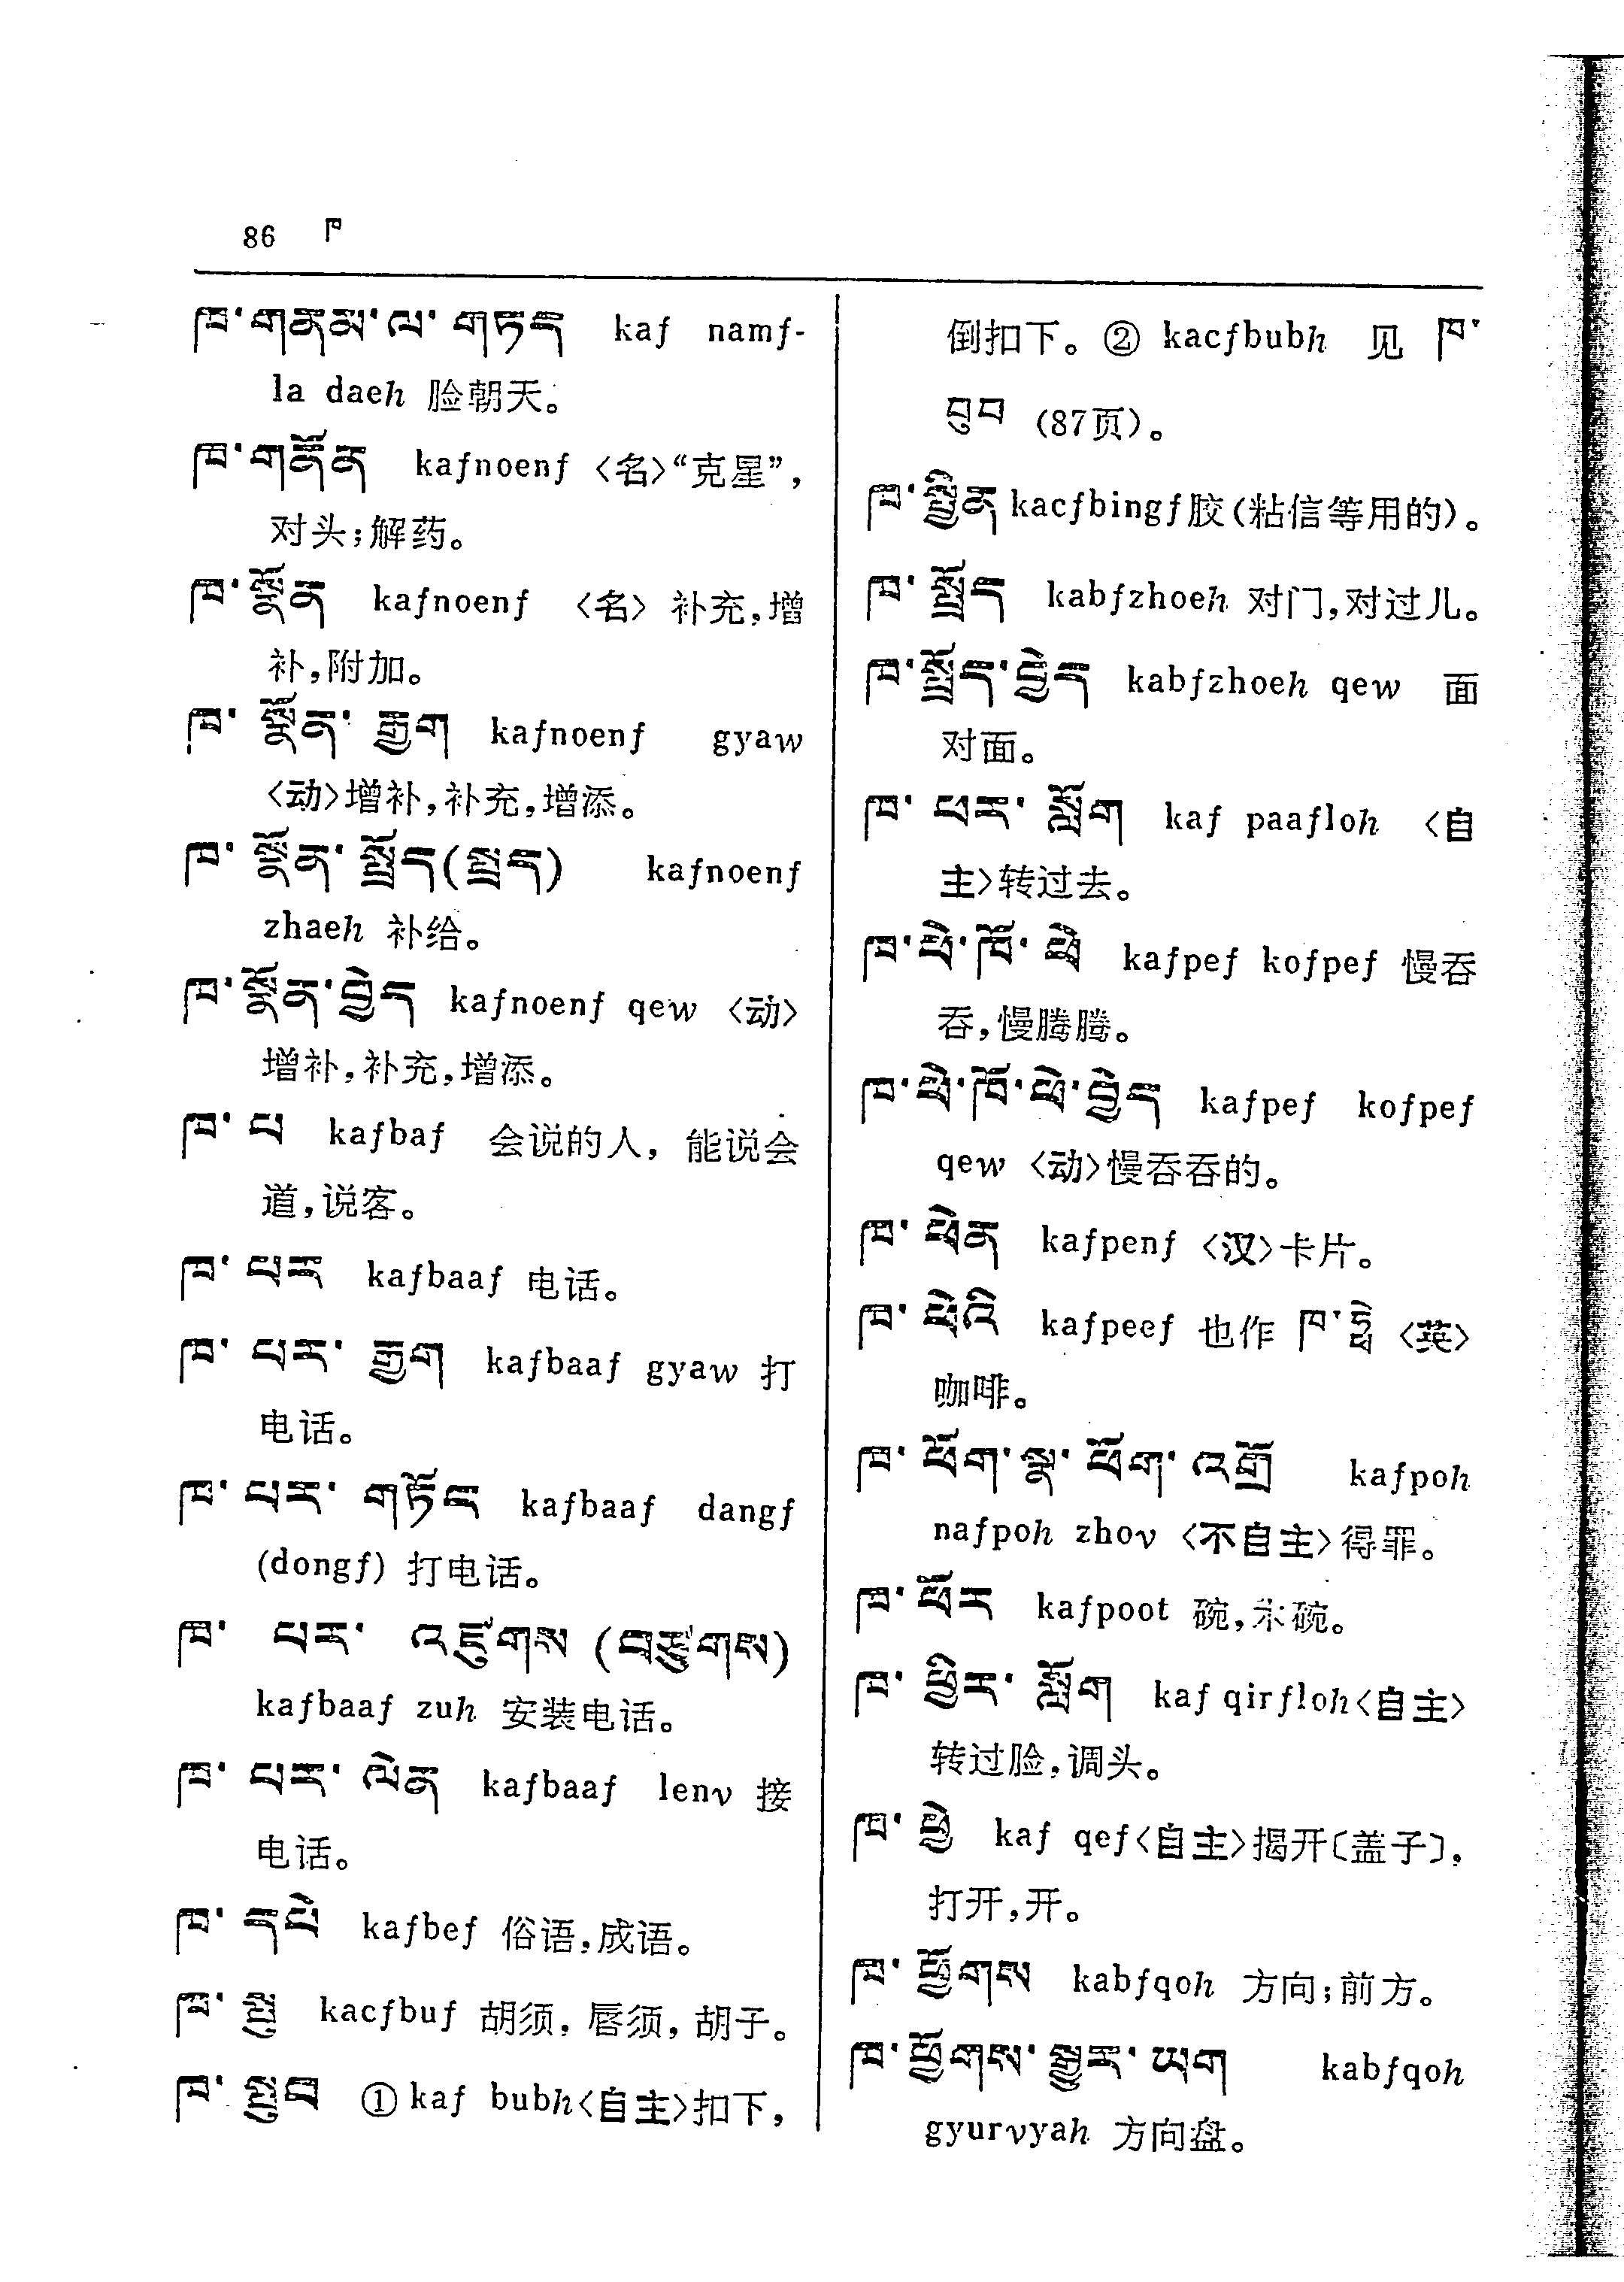 86 ཁ
ཁ་གནམ་ལ་གཏད kaf namf-
la daeh 脸朝天。
ཁ་གནོན kafnoenf 〈名〉“克星”,
对头;解药。
ཁ་སྣོན kafnoenf 〈名〉 补充,增
补,附加。
ཁ་སྣོན་རྒྱག kafnoenf gyaw
〈动〉增补,补充,增添。
ཁ་སྣོན་སྤྲོད(སྤྲད) kafnoenf
zhaeh 补给。
ཁ་སྣོན་བྱེད kafnoenf qew 〈动〉
增补,补充,增添。
ཁ་པ kafbaf 会说的人, 能说会
道,说客。
ཁ་པར kafbaaf 电话。
ཁ་པར་རྒྱག kafbaaf gyaw 打
电话。
ཁ་པར་གཏོང kafbaaf dangf
(dongf) 打电话。
ཁ་པར་འཛུགས (བཙུགས)
kafbaaf zuh 安装电话。
ཁ་པར་ལེན kafbaaf lenv 接
电话。
ཁ་དཔེ kafbef 俗语,成语。
ཁ་སྤུ kacfbuf 胡须, 唇须, 胡子。
ཁ་སྤུབ ① kaf bubh〈自主〉扣下,
倒扣下。② kacfbubh 见 ཁ་
བུབ (87页)。
ཁ་སྤྱིན kacfbingf 胶(粘信等用的)。
ཁ་སྤྲོད kabfzhoeh 对门,对过儿。
ཁ་སྤྲོད་བྱེད kabfzhoeh qew 面
对面。
ཁ་ཕར་སློག kaf paafloh 〈自
主〉转过去。
ཁ་ཕེ་ཁོ་ཕེ kafpef kofpef 慢吞
吞,慢腾腾。
ཁ་ཕེ་ཁོ་ཕེ་བྱེད kafpef kofpef
qew 〈动〉慢吞吞的。
ཁ་ཕེན kafpenf 〈汉〉卡片。
ཁ་ཕེའི kafpeef 也作 ཁ་ཧྥེ 〈英〉
咖啡。
ཁ་ཕོག་སྣ་ཕོག་འགྲོ kafpoh
nafpoh zhov 〈不自主〉得罪。
ཁ་ཕོར kafpoot 碗,木碗。
ཁ་ཕྱིར་སློག kaf qirfloh〈自主〉
转过脸,调头。
ཁ་ཕྱེ kaf qef〈自主〉揭开〔盖子〕,
打开,开。
ཁ་ཕྱོགས kabfqoh 方向;前方。
ཁ་ཕྱོགས་སྒྱུར་ཡག kabfqoh
gyurvyah 方向盘。